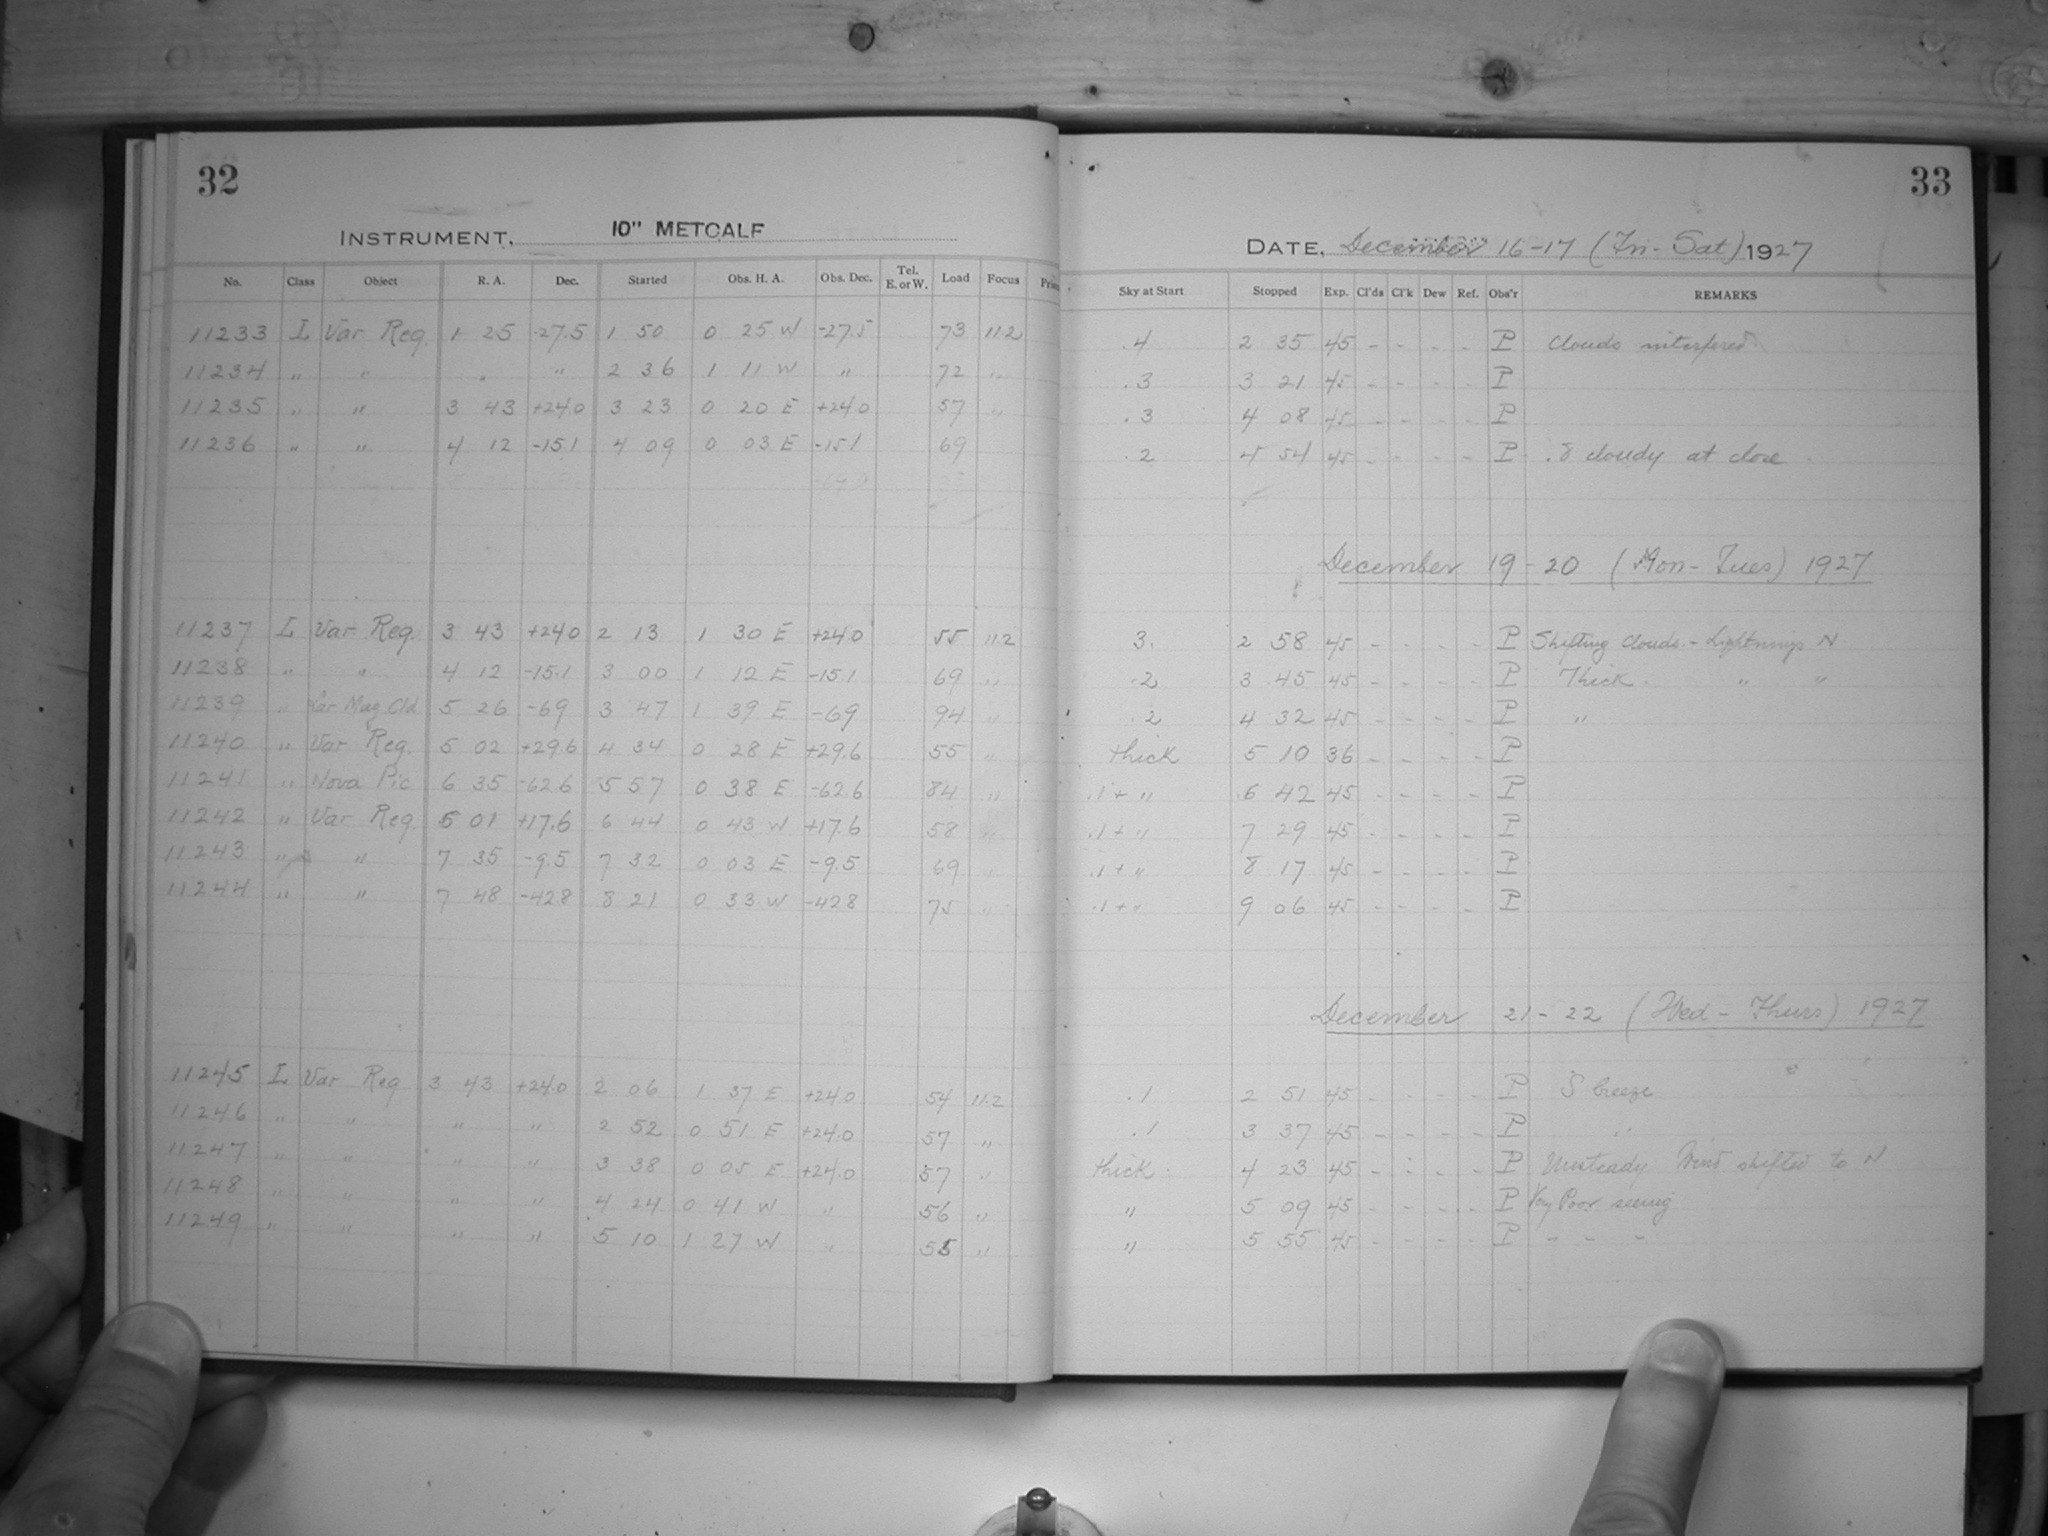 32
INSTRUMENT, 10" METCALF
No. Class Object R. A. Dec. Started Obs. H. A. Obs. Dec. Tel. E. or W. Load Focus
11233 L Var Reg. 1 25 -27.5 1 50 0 25 W -27.5 73 11.2
11234 " " " " 2 36 1 11 W " 72 "
11235 " " 3 43 +24.0 3 23 0 20 E +24.0 57 "
11236 " " 4 12 -15.1 4 09 0 03 E -15.1 69
11237 L Var Reg. 3 43 +24.0 2 13 1 30 E +24.0 55 11.2
11238 " " 4 12 -15.1 3 00 1 12 E -15.1 69 "
11239 " Lar Mag Cld 5 26 -69 3 47 1 39 E -69 94 "
11240 " Var Reg. 5 02 +29.6 4 34 0 28 E +29.6 55 "
11241 " Nova Pic 6 35 -62.6 5 57 0 38 E -62.6 84 "
11242 " Var Reg. 6 01 +17.6 6 44 0 43 W +17.6 58 "
11243 " " 7 35 -9.5 7 32 0 03 E -9.5 69 "
11244 " " 7 48 -42.8 8 21 0 33 W -42.8 75 "
11245 L Var Reg 3 43 +24.0 2 06 1 37 E +24.0 54 11.2
11246 " " " " 2 52 0 51 E +24.0 57 "
11247 " " " " 3 38 0 05 E +24.0 57 "
11248 " " " " 4 24 0 41 W " 56 "
11249 " " " " 5 10 1 27 W " 55 "
33
DATE, December 16-17 (Fri-Sat) 1927
Sky at Start Stopped Exp. Cl'ds Cl'k Dew Ref. Obs'r REMARKS
.4 2 35 45 - - - - P Clouds interfered.
.3 3 21 45 - - - - P
.3 4 08 45 - - - - P
.2 4 54 45 - - - - P .8 cloudy at close
December 19-20 (Mon-Tues) 1927
3. 2 58 45 - - - - P Shifting Clouds - Lightnings N
.2 3 45 45 - - - - P Thick " "
.2 4 32 45 - - - - P "
thick 5 10 36 - - - - P
.1+ " 6 42 45 - - - - P
.1+ " 7 29 45 - - - - P
.1+ " 8 17 45 - - - - P
.1+ " 9 06 45 - - - - P
December 21-22 (Wed-Thurs) 1927
.1 2 51 45 - - - - P S breeze
.1 3 37 45 - - - - P "
thick 4 23 45 - - - - P Unsteady Wind shifted to N
" 5 09 45 - - - - P Very Poor seeing
" 5 55 45 - - - - P - - -